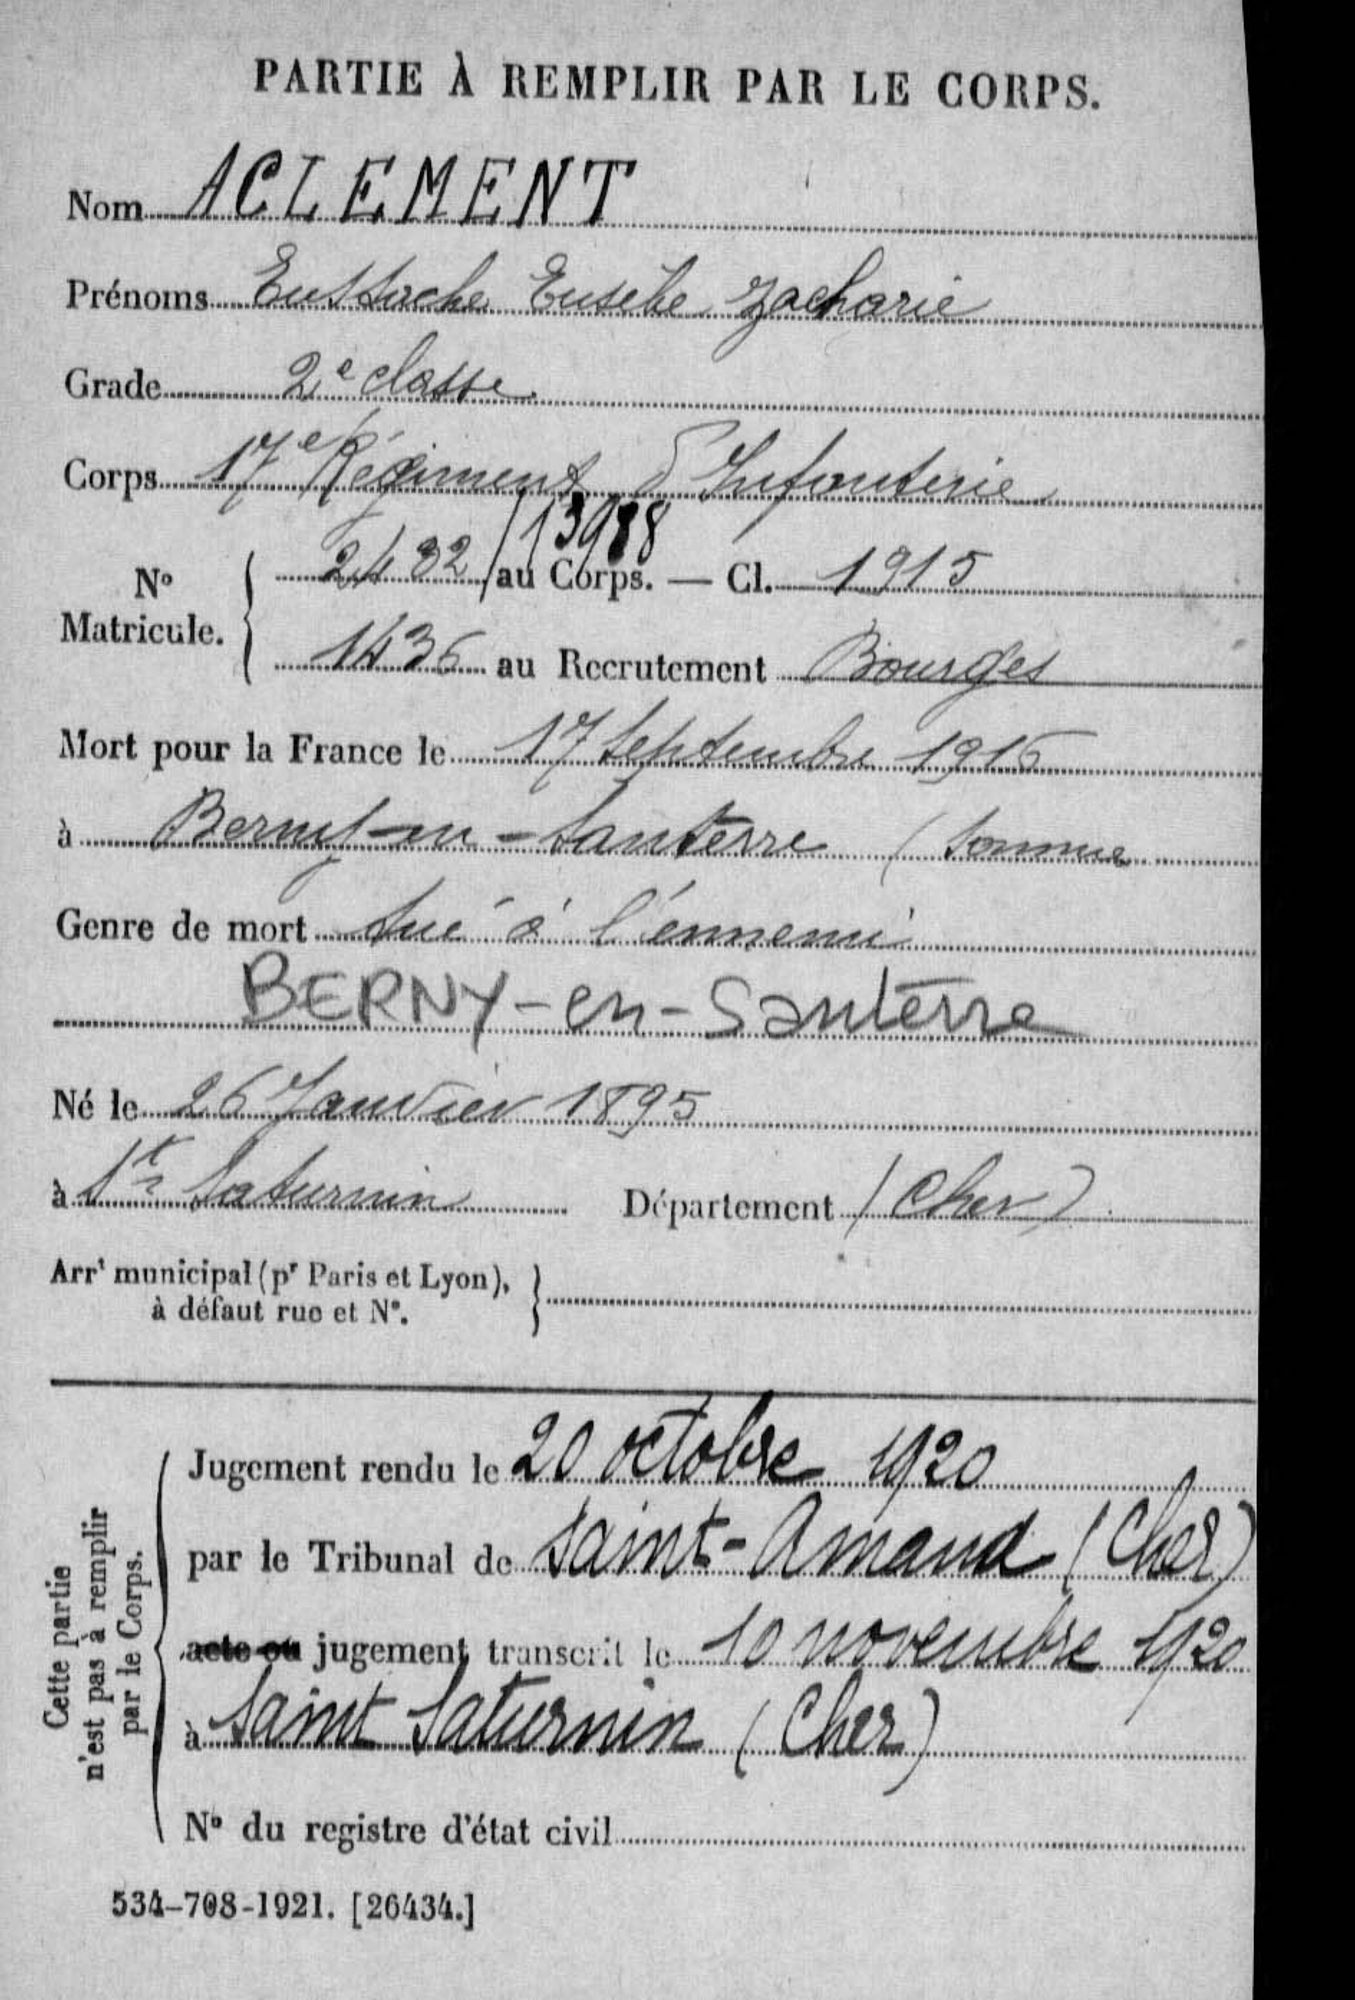 PARTIE À REMPLIR PAR LE CORPS.
Nom ACLEMENT
Prénoms Eustache Eusèbe Zacharie
Grade 2e classe
Corps 17e Régiment d'Infanterie
13988
No Matricule. { 2432 / au Corps. — Cl. 1915
1436 au Recrutement Bourges
Mort pour la France le 17 Septembre 1916
à Berny-en-Santerre (Somme
Genre de mort tué à l'énnemi
BERNY-en-Santerre
Né le 26 Janvier 1895
à St Saturnin Département (Cher)
Arrt municipal (pr Paris et Lyon),
à défaut rue et No. }
Cette partie
n'est pas à remplir
par le Corps.
Jugement rendu le 20 octobre 1920
par le Tribunal de Saint-Amand (Cher)
acte ou jugement transcrit le 10 novembre 1920
à Saint Saturnin (Cher)
No du registre d'état civil
534-708-1921. [26434.]